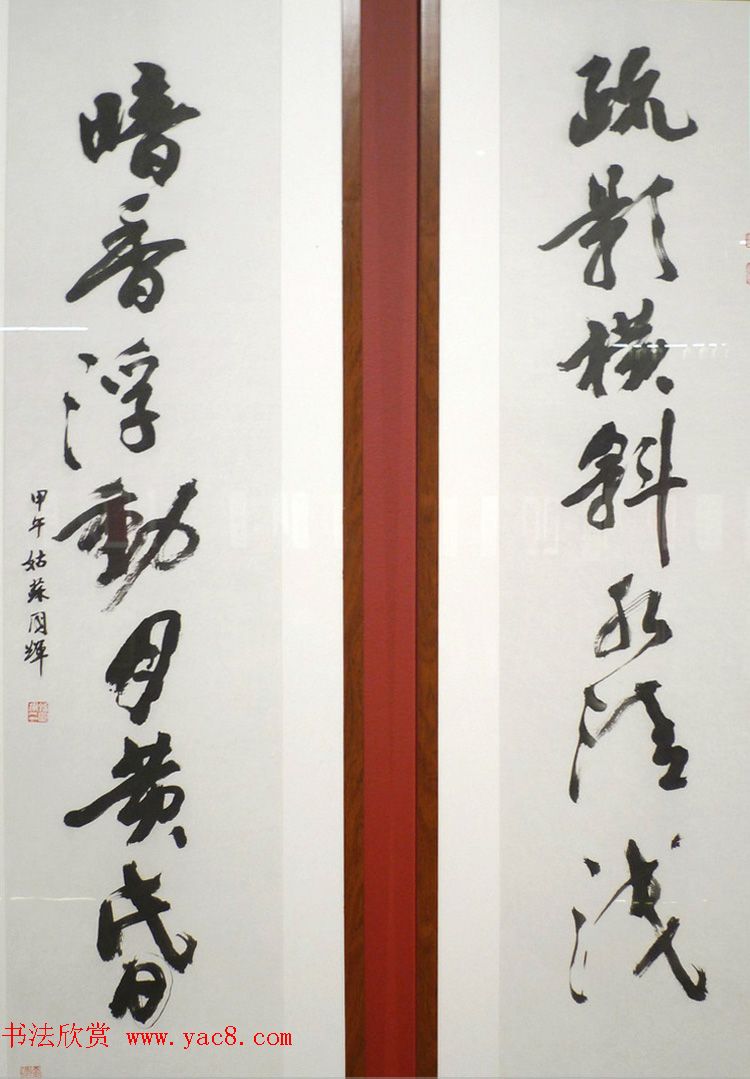 疏影横斜水清浅
暗香浮動月黄昏
甲午姑蘇國輝
书法欣赏 www.yac8.com